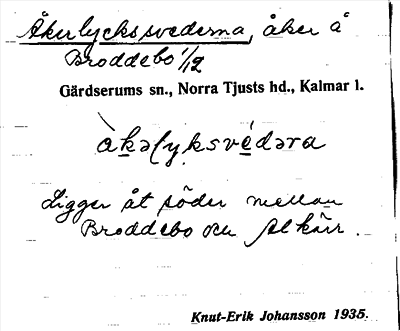 Åkerlyckssvederna, åker å
Broddebo 1/12
Gärdserums sn., Norra Tjusts hd., Kalmar l.
àkəlyksvédəra
Ligger åt söder mellan
Broddebo och Alkärr.
Knut-Erik Johansson 1935.